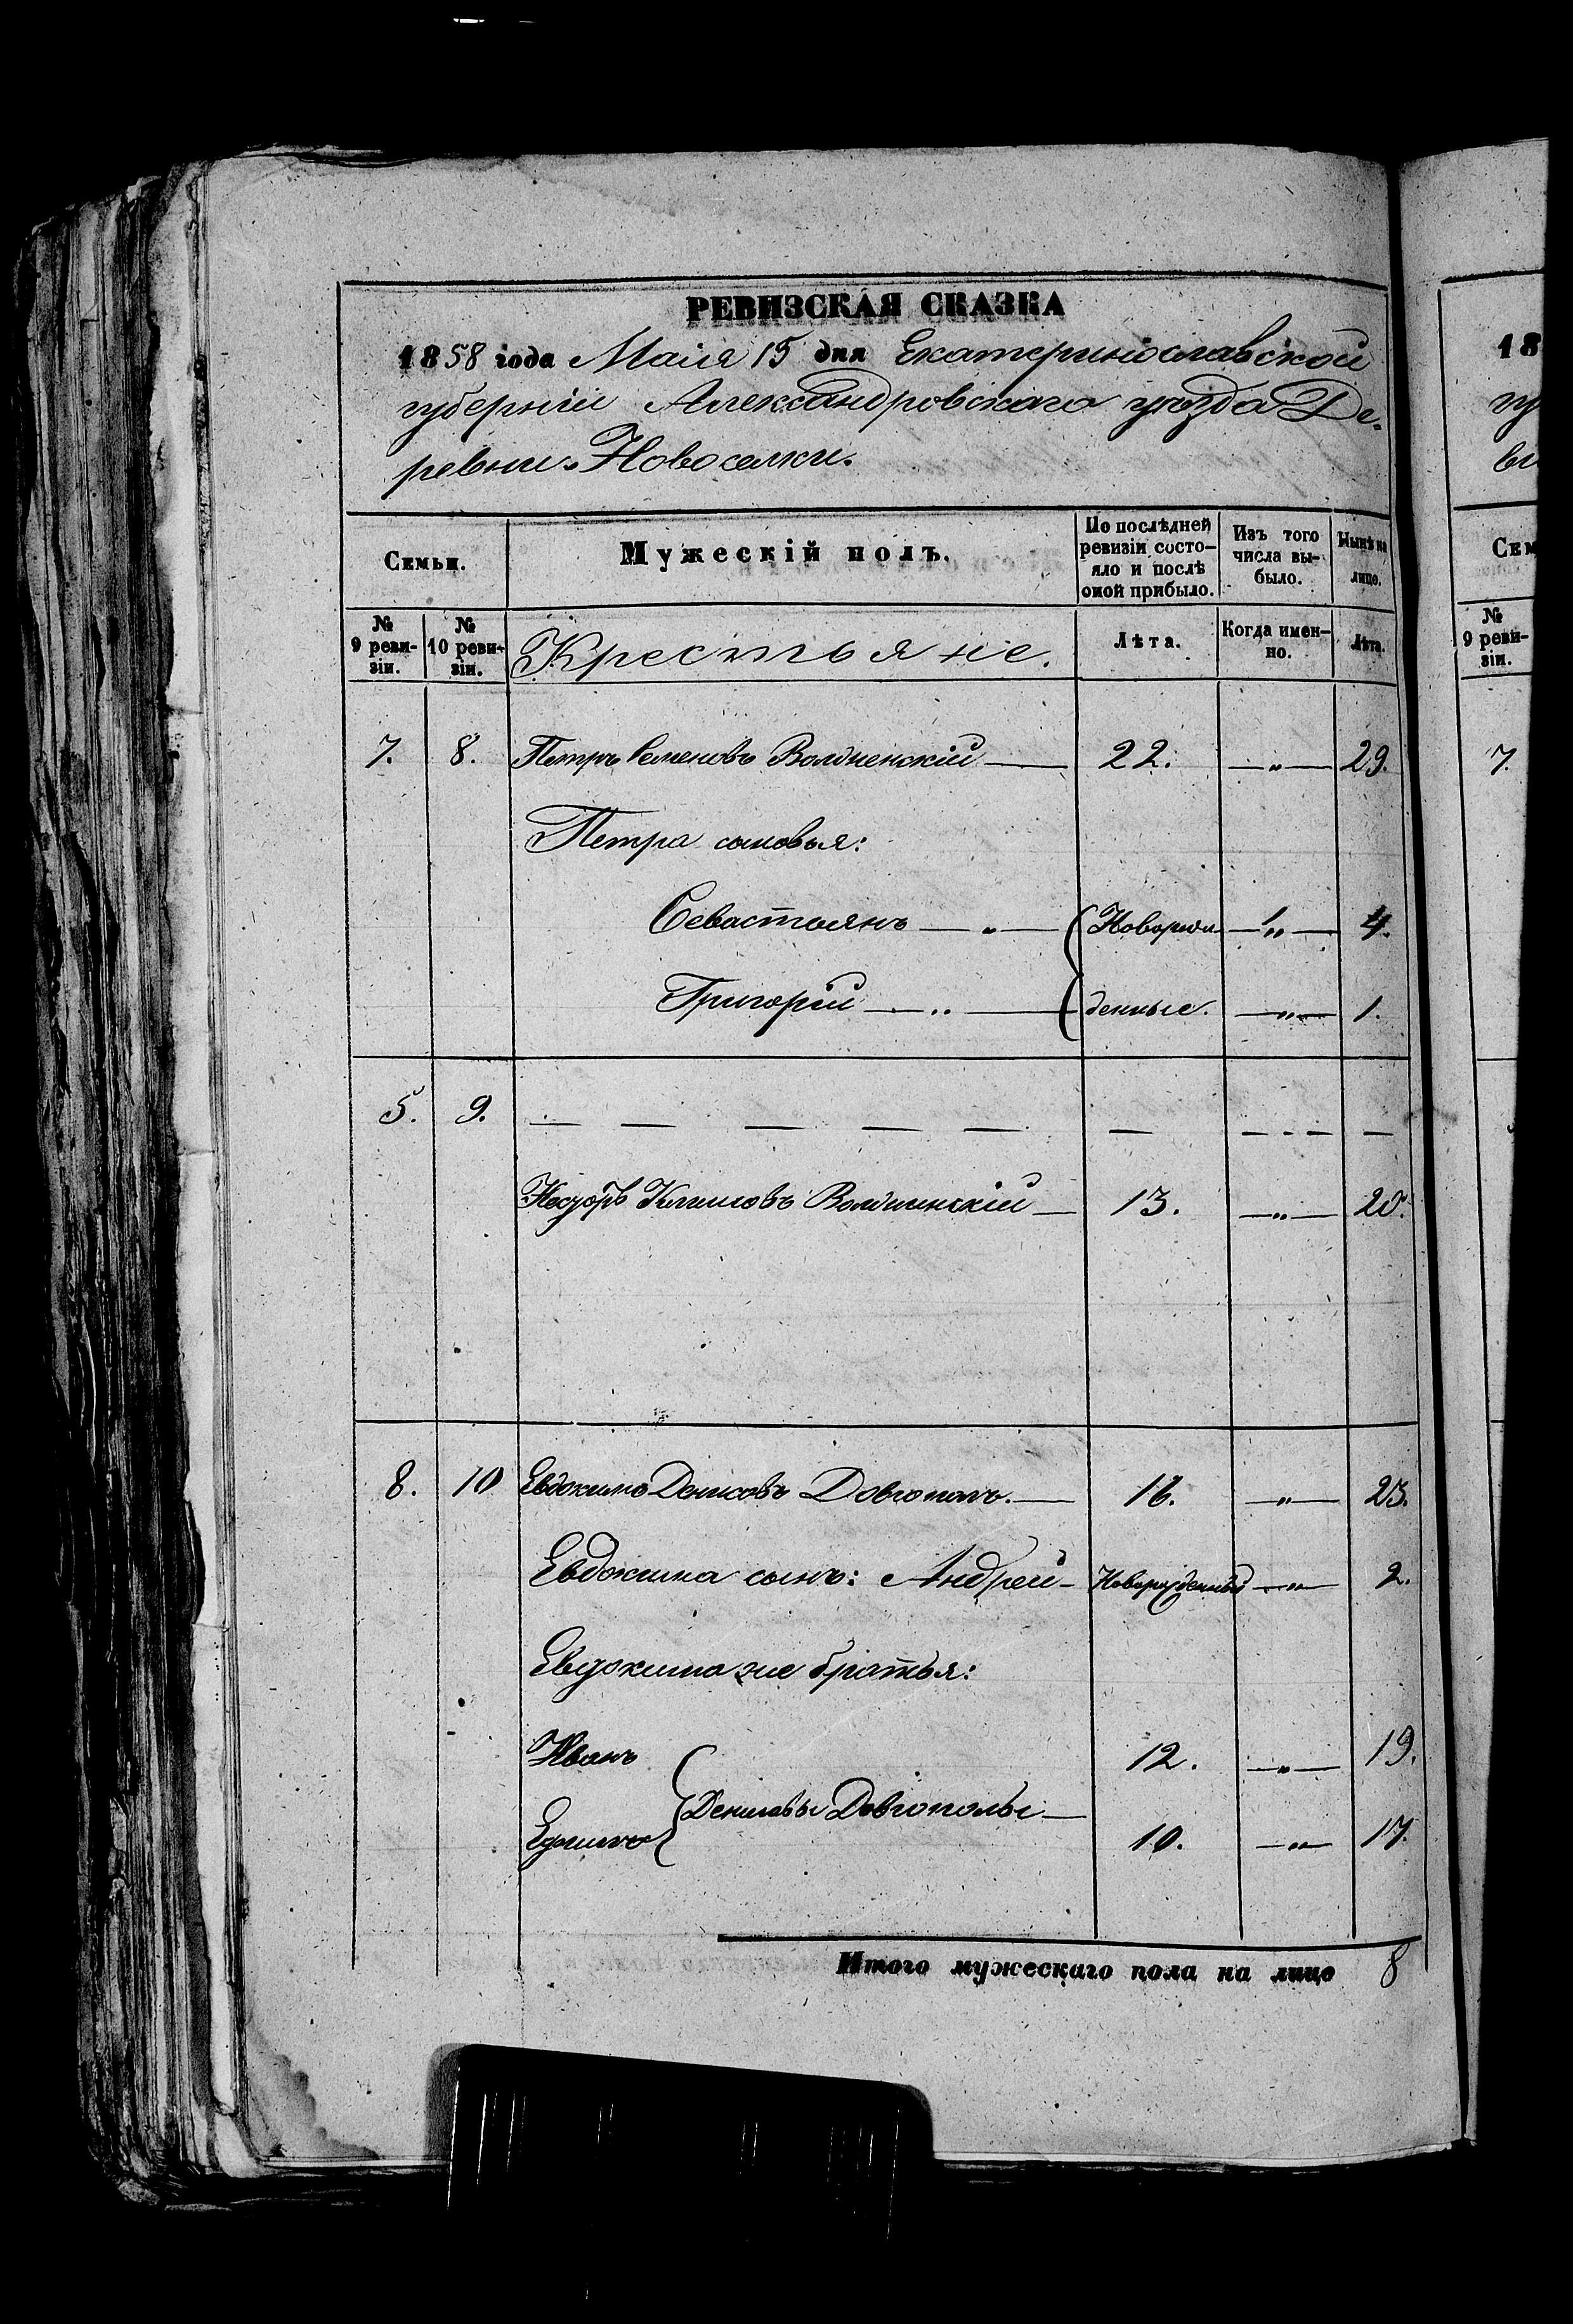 РЕВИЗСКАЯ СКАЗКА
1858 года Маія 15 дня Екатеринославской
губерніи Александровскаго уѣзда Де-
ревни Новоселки.
Семьи. Мужескій полъ. По послѣдней ревизіи состо-яло и послѣ оной прибыло. Изъ того числа вы-было. Нынѣ на лицо.
№ 9 реви-зіи. № 10 реви-зіи. Крестьяне. Лѣта. Когда имен-но. Лѣта.
7. 8. Петръ Семеновъ 22. — „ — 29.
Петра сыновья:
Севастьянъ — „ — Новорож — „ — 4.
Григорій — „ — денные. — „ — 1.
5. 9. — — — — — — — - - — —
Климовъ 13. — „ — 20.
8. 10 Евдокимъ Денисовъ Довгополъ. — 16. — „ — 23.
Евдокима сынъ: Андрей — Новорожденный — „ — 2.
Евдокима же братья:
Иванъ 12. — „ — 19.
Денисовы Довгополы —
10. — „ — 17.
Итого мужескаго пола на лицо 8
18
гу
ви
Сем
№
9 реви-
зіи.
7.